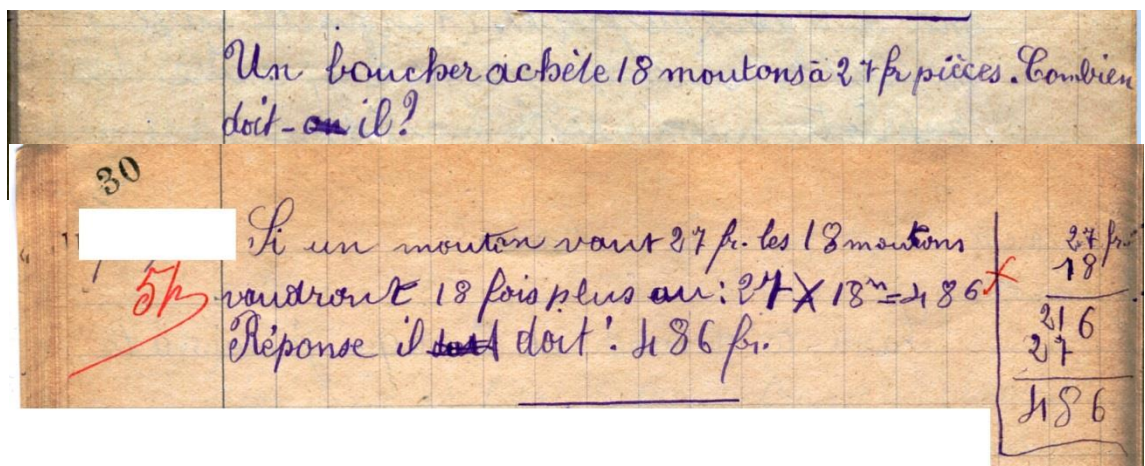 Un boucher achète 18 moutons à 27 fr pièces. Combien
doit-il?
30
Si un mouton vaut 27 fr. les 18 moutons
vaudront 18 fois plus ou : 27 X 18 = 486
Réponse il doit : 486 fr.
27 fr.
18
216
27
486